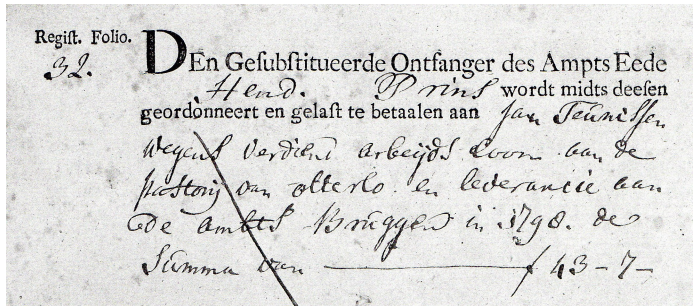 Regist. Folio.
32.
DEn Gesubstitueerde Ontfanger des Ampts Eede
Hend. Prins wordt midts deesen
geordonneert en gelast te betaalen aan Jan Teunissen
wegens verdiend arbeijds Loon aan de
pastorij van otterlo en leverancie aan
De ambts Bruggen in 1798. de
Summa van — f 43 - 7 -